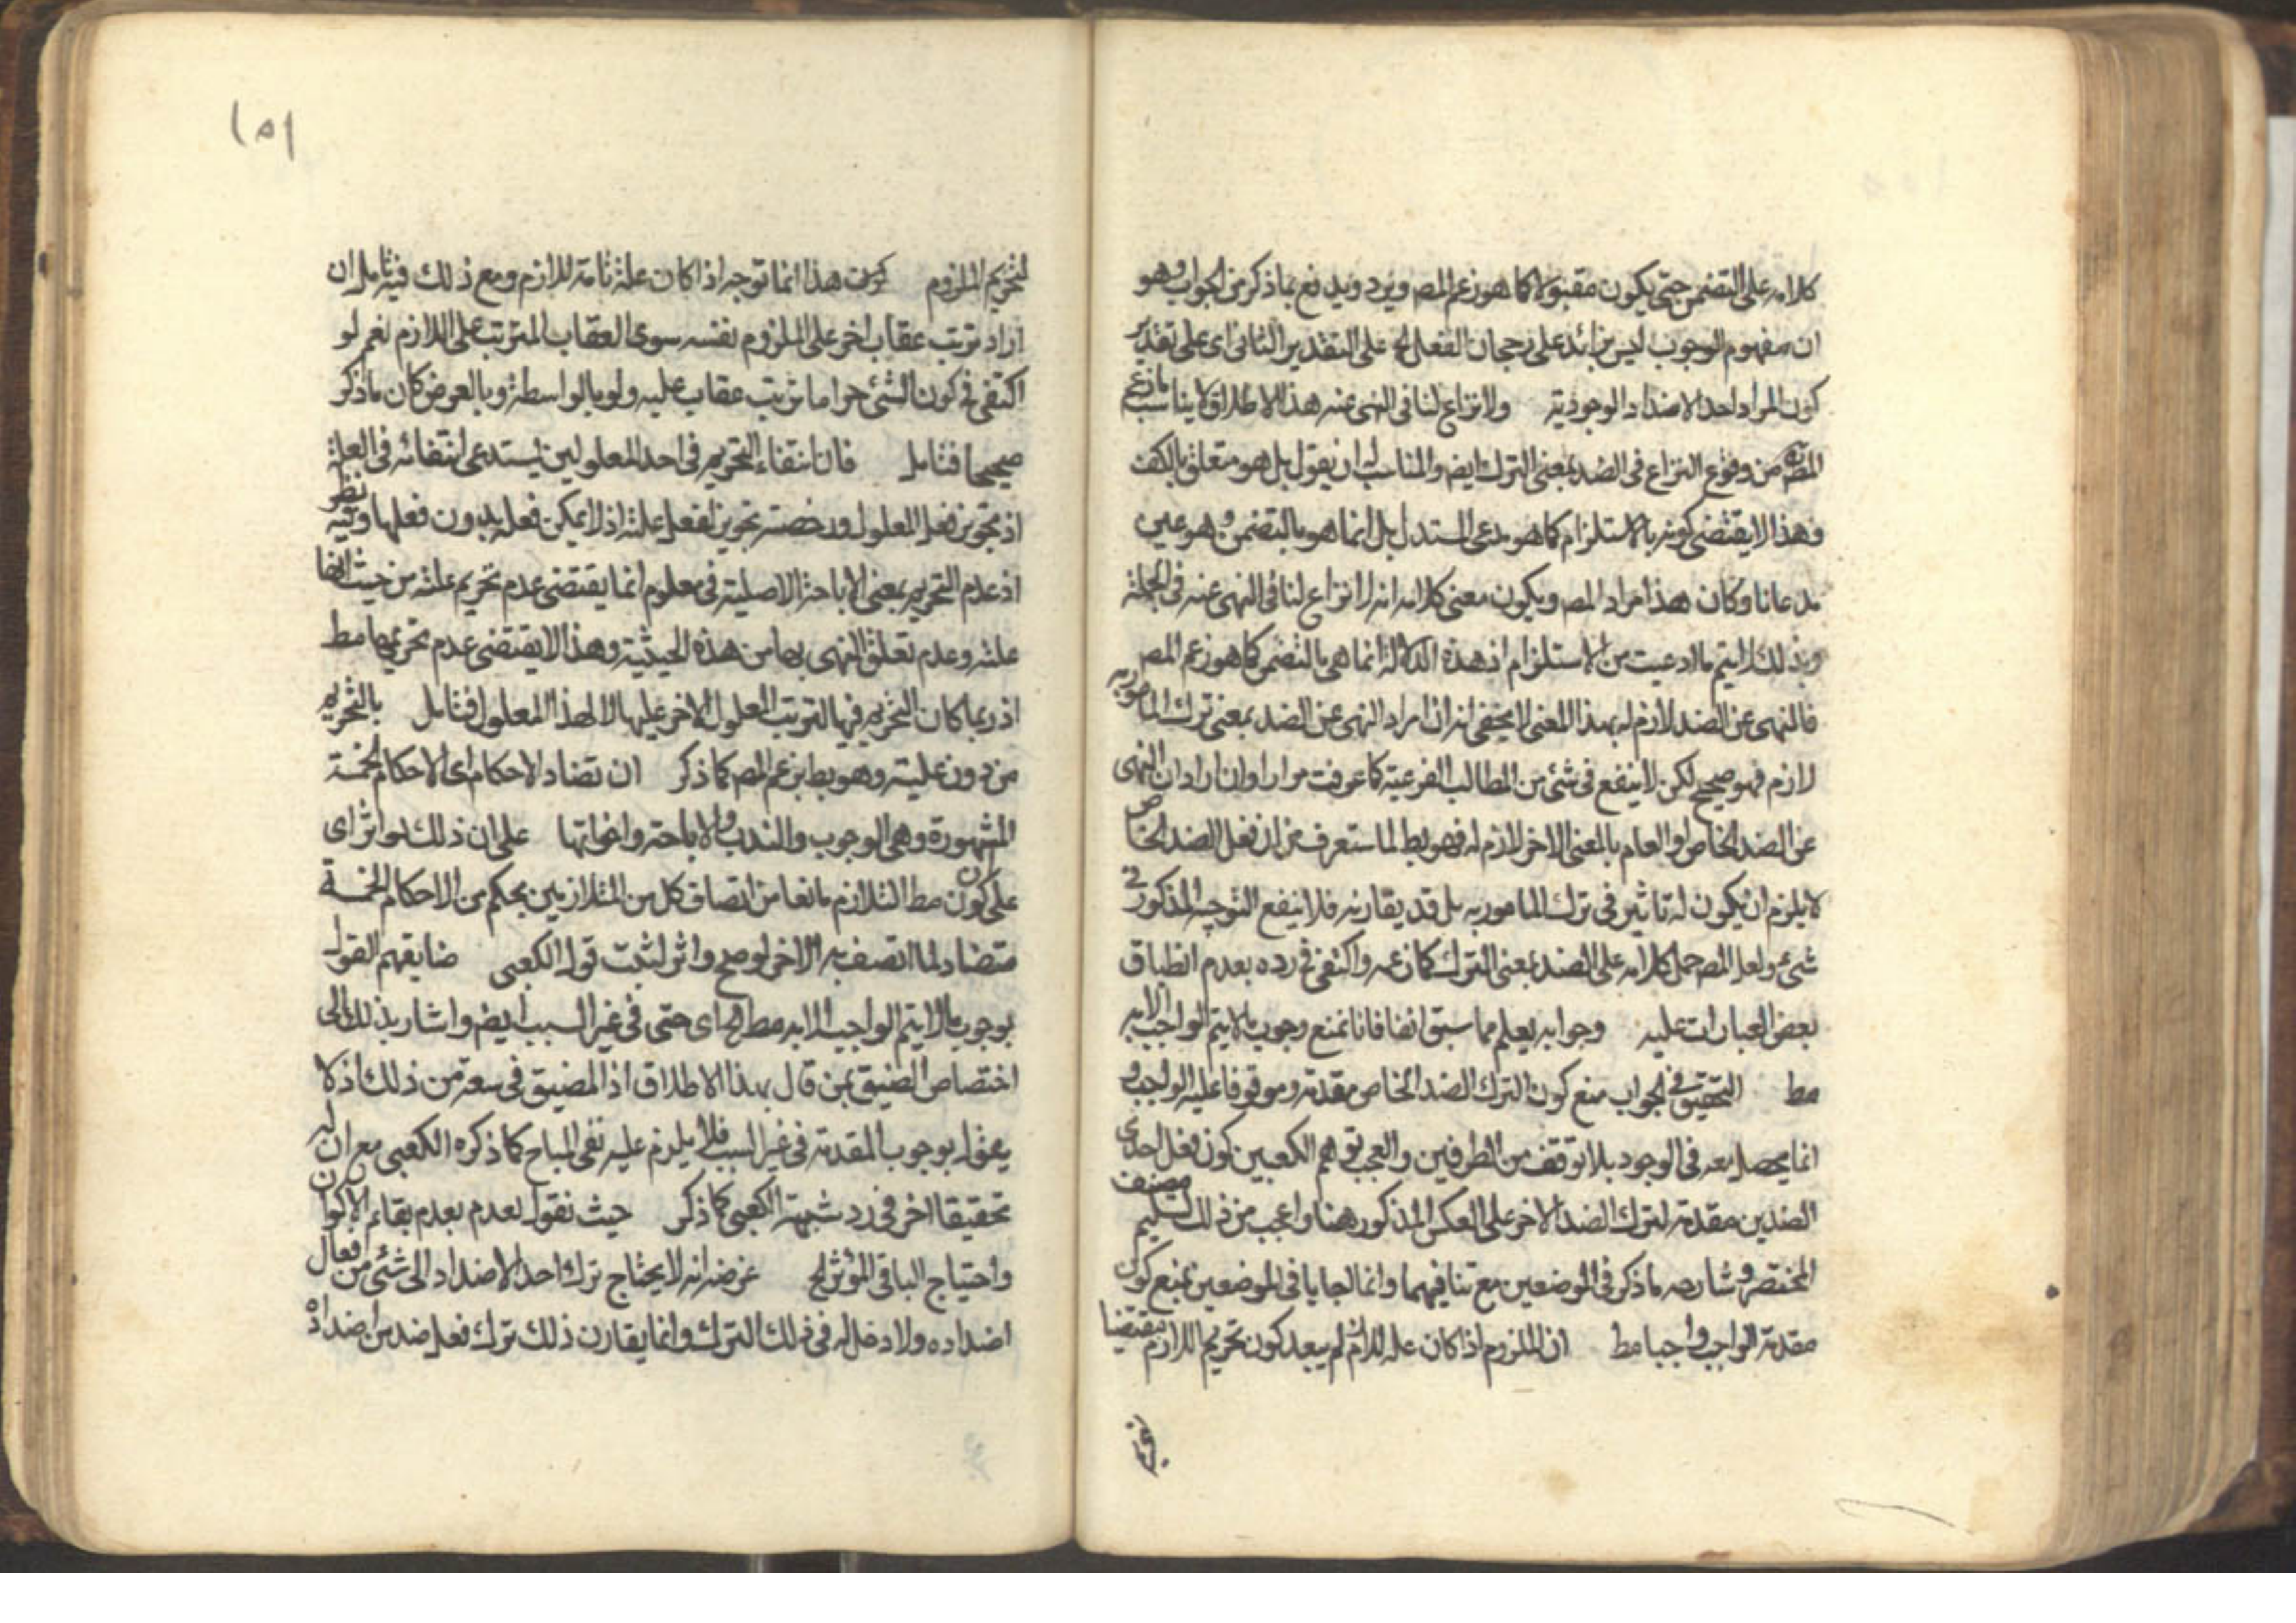 كلامه على التضمن حتى يكون مقبولا كما هو زعم المص ويرد ويدفع بما ذكر من الجواب وهو
ان مفهوم الوجوب ليس بزائد على رجحان الفعل الخ على التقدير الثانى اى على تقدير
كون المراد احد الاضداد الوجودية ولا نزاع لنا فى النهى عنه هذا الاطلاق لا يناسب مازعم
المص من وقوع النزاع فى الضد بمعنى الترك ايض والمناسب له ان يقول بل هو متعلق بالكف
وهذا لا يقتضى كونه بالاستلزام كما هو مدعى المستدل بل انما هو بالتضمن وهو عين
مدعانا وكان هذا مراد المص ويكون معنى كلامه انه لا نزاع لنا فى النهى عنه فى الجملة
وبذلك لا يتم ما ادعيت من الاستلزام اذ هذه الدلالة انما هى بالتضمن كما هو زعم المص
فالنهى عن الضد لازم له بهذا المعنى لا يخفى انه ان اراد النهى عن الضد بمعنى ترك المامور به
لازم فهو صحيح لكن لا ينفع فى شئ من المطالب الفرعية كما عرفت مرارا وان اراد ان النهى
عن الضد الخاص او العام بالمعنى الاخر لازم له فهو بط لما ستعرف من ان فعل الضد الخاص
لا يلزم ان يكون له تاثير فى ترك المامور به بل قد يقارنه فلا ينفع التوجيه المذكور فى
شئ ولعل المص حمل كلامه على الضد بمعنى الترك كما زعمه واكتفى فى رده بعدم انطباق
بعض العبارات عليه وجوابه يعلم مما سبق انفا فانا نمنع وجوب ما لا يتم الواجب الا به
مط التحقيق فى الجواب منع كون الترك الضد الخاص مقدمة وموقوفا عليه الواجب و
انما يحصل معه فى الوجود بلا توقف من الطرفين والعجب توهم الكعبين كون فعل احدى
الضدين مقدمة لترك الضد الاخر على العكس المذكور هنا واعجب من ذلك تسليم مصنف
المختصر وشارحه ما ذكر فى الموضعين مع تنافيهما وانما اجابا فى الموضعين بمنع كون
مقدمة الواجب واجبا مط ان الملزوم اذا كان علة للازم لم يبعد كون تحريم اللازم مقتضيا
لتحريم
١٥١
لتحريم الملزوم كون هذا انما توجه اذا كان علة تامة للازم ومع ذلك فيتامل ان
اراد ترتب عقاب اخر على الملزوم نفسه سوى العقاب المترتب على اللازم نعم لو
اكتفى فى كون الشئ حراما ترتب عقاب عليه ولو بالواسطة وبالعرض كان ما ذكر
صحيحا فتامل فان انتفاء التحريم فى احد المعلولين يستدعى انتفائه فى العلة
اذ تجويز فعل المعلول ورخصته تجويز لفعل علته اذ لا يمكن فعله بدون فعلها وفيه نظر
اذ عدم التحريم بمعنى الاباحة الاصلية فى معلوم انما يقتضى عدم تحريم علته من حيث انها
علته وعدم تعلق النهى بها من هذه الحيثية وهذا لا يقتضى عدم تحريمها مط
اذ ربما كان التحريم فيها لترتب المعلول الاخر عليها لا لهذا المعلول فتامل بالتحريم
من دون عليته وهو بط بزعم المص كما ذكر ان تضاد الاحكام اى الاحكام الخمسة
المشهورة وهى الوجوب والندب والاباحة واخواتها على ان ذلك لو اثر اى
على كون مط التلازم مانعا من اتصاف كل من المتلازمين بحكم من الاحكام الخمسة
متضاد لما اتصف به الاخر لو صح واثر لثبت قول الكعبى ضايقهم القول
بوجوب ما لا يتم الواجب الا به مط الخ اى حتى فى غير السبب ايض واشار بذلك الى
اختصاص الضيق بمن قال بهذا الاطلاق اذ المضيق فى سعة من ذلك اذ لا
يقول بوجوب المقدمة فى غير السبب فلا يلزم عليه نفى المباح كما ذكره الكعبى مع ان له
تحقيقا اخر فى رد شبهة الكعبى كما ذكر حيث نقول بعدم بعدم بقاء الاكوان
واحتياج الباقى المؤثر الخ غرضه انه لا يحتاج ترك احد الاضداد الى شئ من افعال
اضداده ولا دخل له فى ذلك الترك وانما يقارن ذلك ترك فعل ضد من اضداده